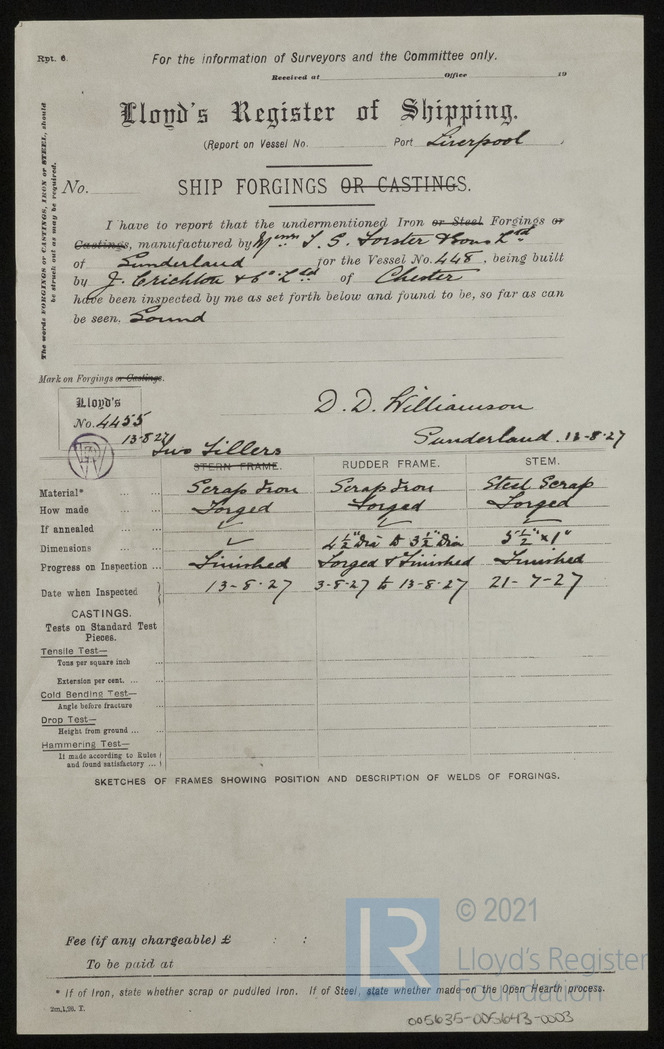 Rpt. 6.
For the information of Surveyors and the Committee only.
Received at Office 19
Lloyd's Register of Shipping.
(Report on Vessel No. Port Liverpool
No. SHIP FORGINGS OR CASTINGS.
The words FORGINGS or CASTINGS, IRON or STEEL, should
be struck out as may be required.
I have to report that the undermentioned Iron or Steel Forgings or
Castings, manufactured by Messrs T. S. Forster & Sons Ltd
of Sunderland for the Vessel No. 448, being built
by J. Crichton & Co Ltd of Chester
have been inspected by me as set forth below and found to be, so far as can
be seen, Sound
Mark on Forgings or Castings.
Lloyd's
No. 4455
13-8-27
D. D. Williamson
Sunderland. 13-8-27
Two Tillers
STERN FRAME. RUDDER FRAME. STEM.
Material* ... ... Scrap Iron Scrap Iron Steel Scrap
How made ... ... Forged Forged Forged
If annealed ... ... ✓ ✓ ✓
Dimensions ... ... ✓ 4½" Dia to 3½" Dia 5½" x 1"
Progress on Inspection ... Finished Forged & Finished Finished
Date when Inspected 13-8-27 3-8-27 to 13-8-27 21-7-27
CASTINGS.
Tests on Standard Test
Pieces.
Tensile Test—
Tons per square inch ...
Extension per cent. ... ...
Cold Bending Test—
Angle before fracture ...
Drop Test—
Height from ground ... ...
Hammering Test—
If made according to Rules
and found satisfactory ...
SKETCHES OF FRAMES SHOWING POSITION AND DESCRIPTION OF WELDS OF FORGINGS.
Fee (if any chargeable) £ : :
To be paid at
* If of Iron, state whether scrap or puddled iron. If of Steel, state whether made on the Open Hearth process.
2m,1,26. T.
LR
© 2021
Lloyd's Register
Foundation
005635-005643-0003